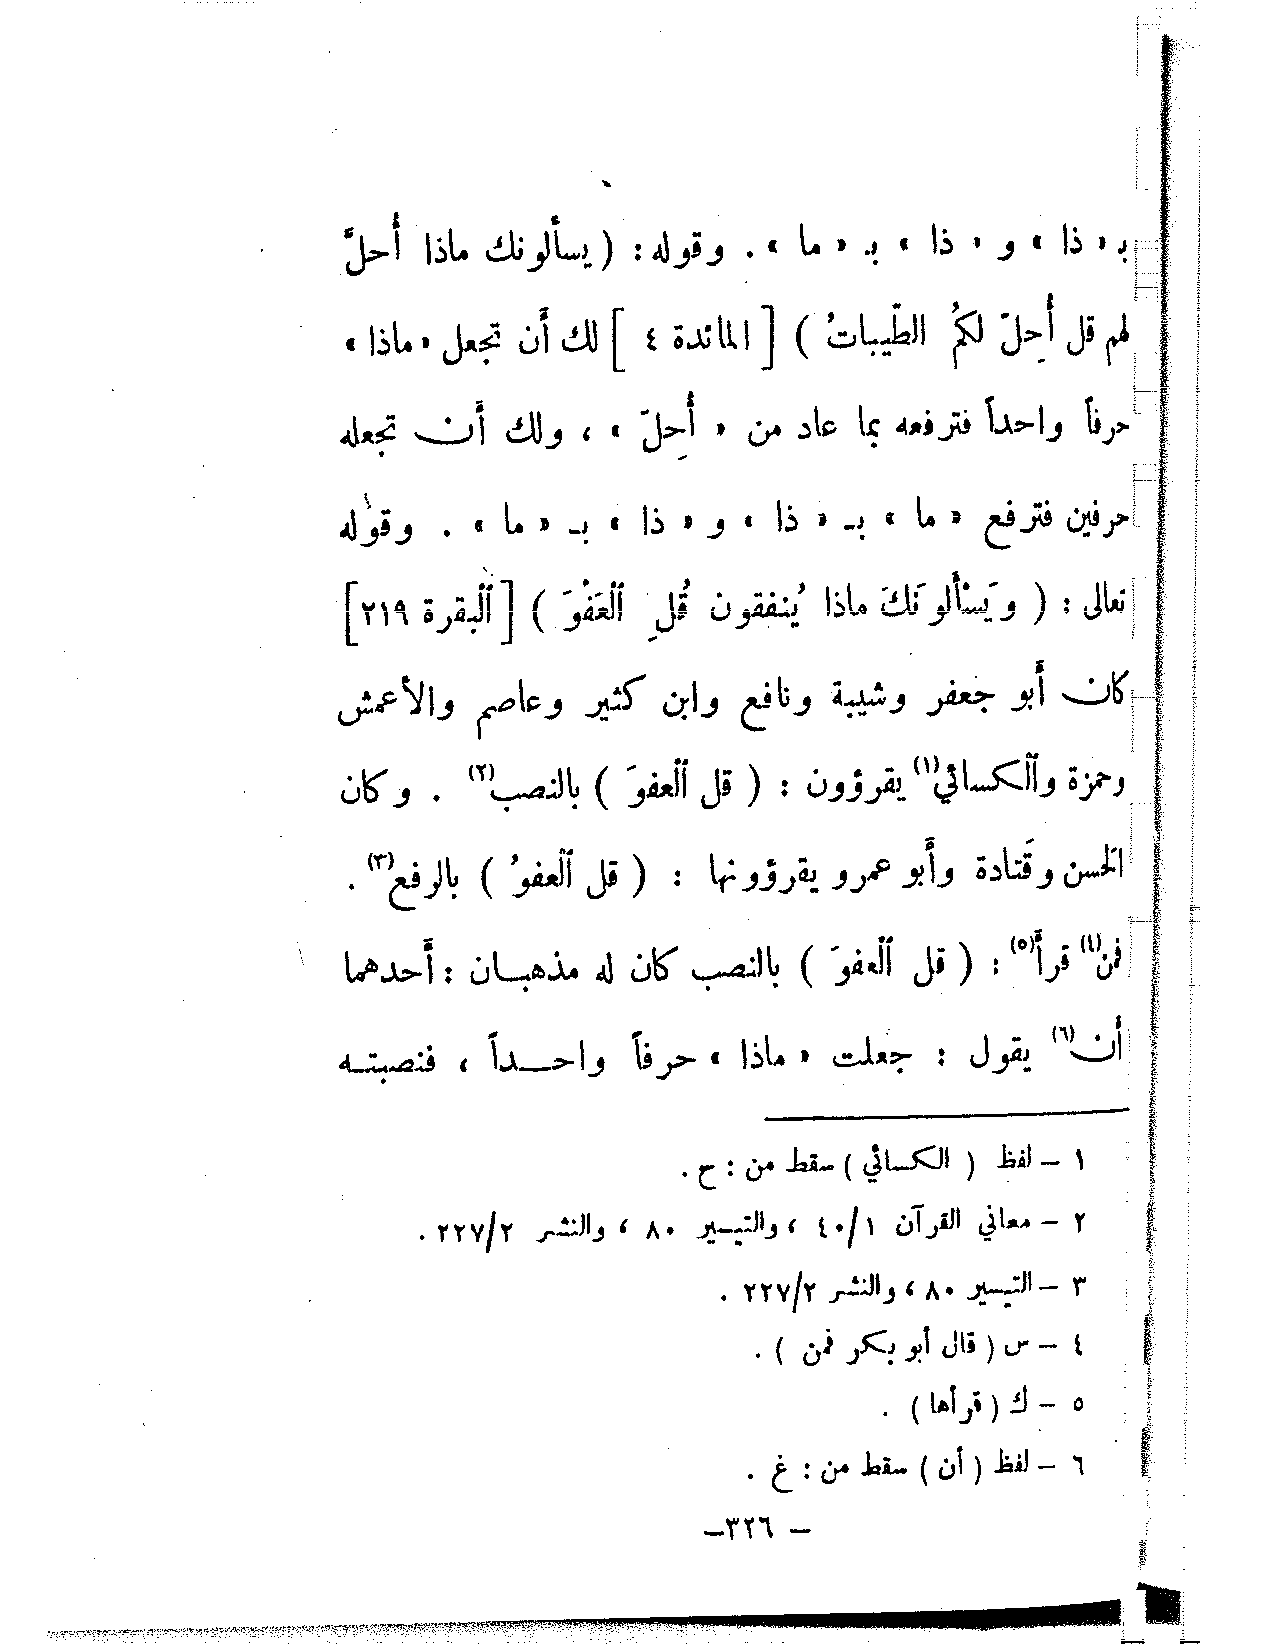 بـ « ذا » و « ذا » بـ « ما » . وقوله : ( يسألونك ماذا أُحلَّ
لهم قل أُحِلّ لكمُ الطّيباتُ ) [ المائدة ٤ ] لك أن تجعل « ماذا »
حرفاً واحداً فترفعه بما عاد من « أُحِلّ » ، ولك أن تجعله
حرفين فترفع « ما » بـ « ذا » و « ذا » بـ « ما » . وقوله
تعالى : ( وَيَسْألونَكَ ماذا يُنفقون قُلِ ٱلْعَفْوَ ) [ ٱلْبقرة ٢١٩ ]
كان أبو جعفر وشيبة ونافع وابن كثير وعاصم والأعمش
وحمزة وٱلْكسائي(١) يقرؤون : ( قل ٱلْعفوَ ) بالنصب(٢) . وكان
الحَسن وقَتادة وأبو عمرو يقرؤونها : ( قل ٱلْعفوُ ) بالرفع(٣) .
فمن(٤) قرأ(٥) : ( قل ٱلْعفوَ ) بالنصب كان له مذهبان : أحدهما
أن(٦) يقول : جعلت « ماذا » حرفاً واحداً ، فنصبته
١ – لفظ ( الكسائي ) سقط من : ح .
٢ – معاني القرآن ٤٠/١ ، والتيسير ٨٠ ، والنشر ٢٢٧/٢ .
٣ – التيسير ٨٠ ، والنشر ٢٢٧/٢ .
٤ – س ( قال أبو بكر فمن ) .
٥ – ك ( قرأها ) .
٦ – لفظ ( أن ) سقط من : غ .
– ٣٢٦ –